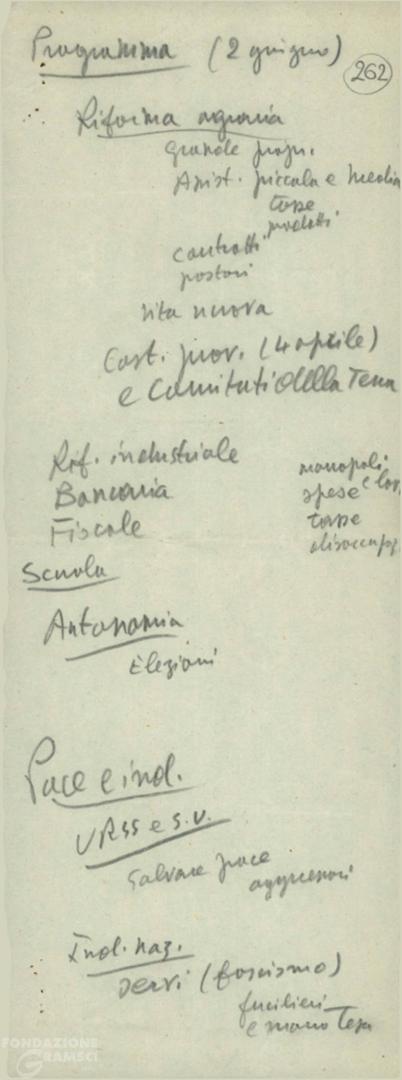 Programma (2 giugno)
262
Riforma agraria
Grande propr.
Assist. piccola e media
tasse
prodotti
contratti
pastori
vita nuova
Cost. prov. (4 aprile)
e Comitati della Terra
Rif. industriale
monopoli
Bancaria
spese
Fiscale
tasse
disoccupaz
Scuola
Autonomia
Elezioni
Pace e ind.
URSS e S.U.
Salvare pace
aggressori
Ind. naz.
servi (fascismo)
fucilieri
e mano tesa
FONDAZIONE
GRAMSCI